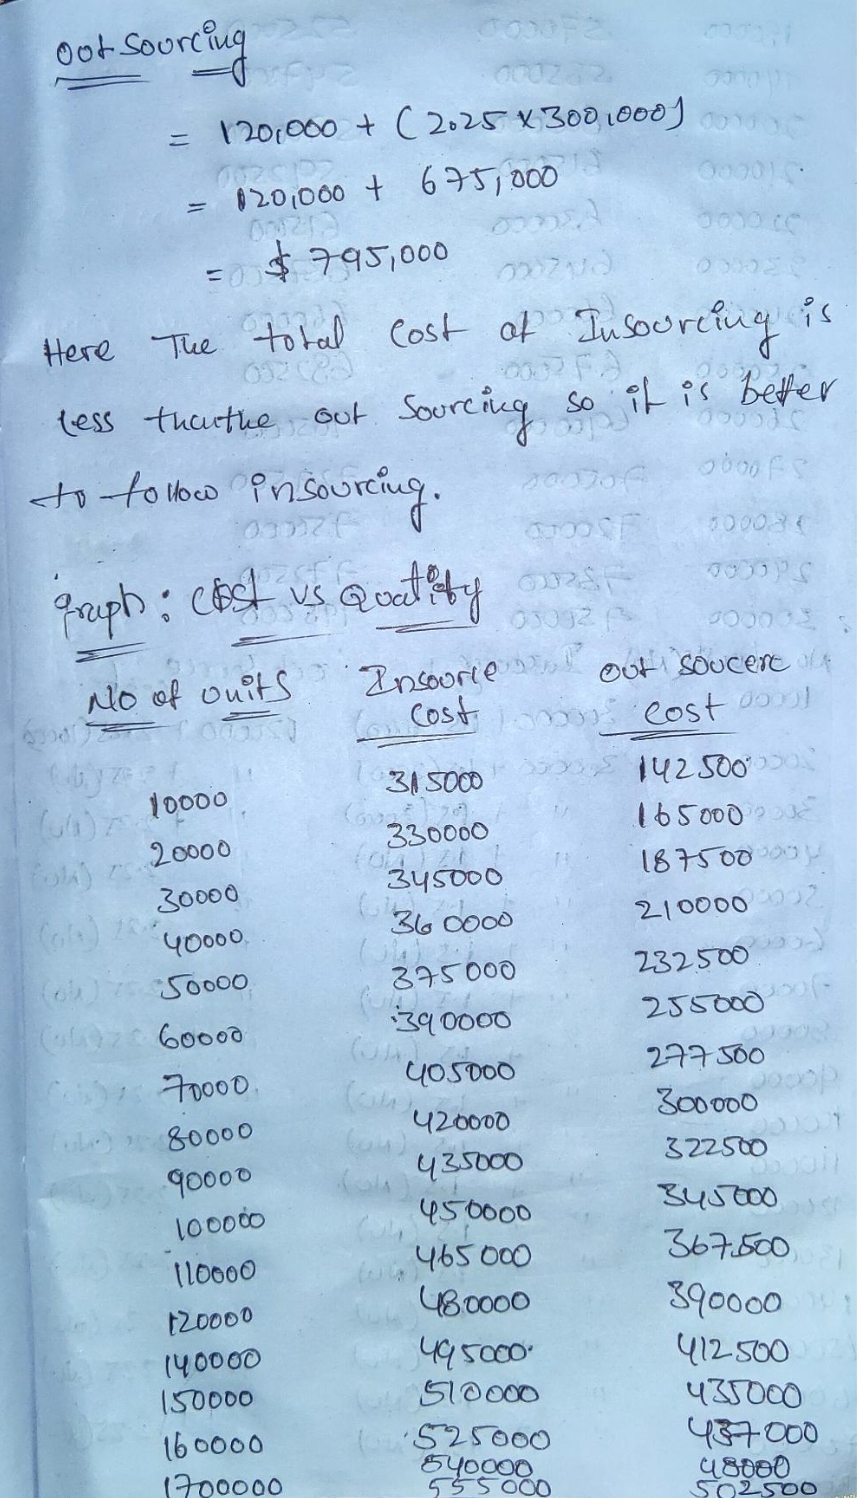 Outsourcing
= 120,000 + (2.25 x 300,000)
= 120,000 + 675,000
= $ 795,000
Here The total Cost of Insourcing is
less thanthe out Sourcing so it is better
to follow insourcing.
graph: Cost vs Quatity
No of units Insource cost out soucere cost
10000 315000 142500
20000 330000 165000
30000 345000 187500
40000 360000 210000
50000 375000 232500
60000 390000 255000
70000 405000 277500
80000 420000 300000
90000 435000 322500
100000 450000 345000
110000 465000 367500
120000 480000 390000
140000 495000 412500
150000 510000 435000
160000 525000 437000
540000 48000
1700000 555000 502500